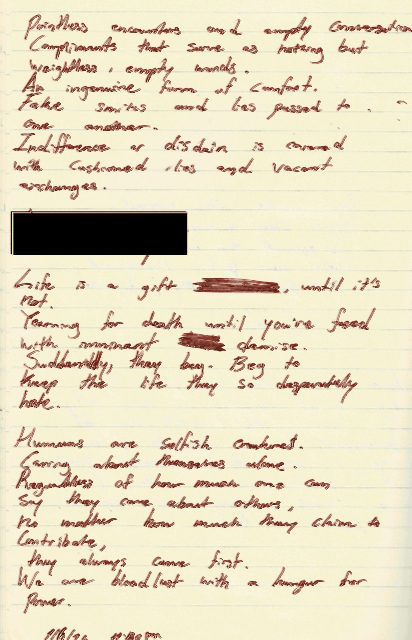 Pointless encounters and empty conversation
Compliments that serve as nothing but
weightless, empty words.
An ingenuine form of comfort.
Fake smiles and lies passed to
one another.
Indifference or disdain is covered
with cushioned lies and vacant
exchanges.
Life is a gift , until it's
not.
Yearning for death until you're faced
with imminant demise.
Suddenly, they beg. Beg to
keep the life they so desperately
hate.
Humans are selfish creatures.
Caring about themselves alone.
Regardless of how much one can
say they care about others,
no matter how much they claim to
contribute,
they always come first.
We are bloodlust with a hunger for
Power.